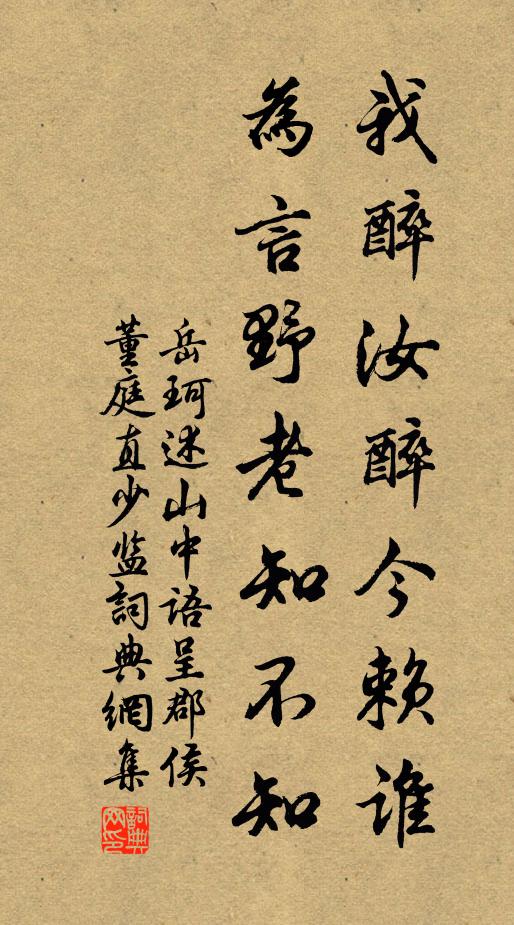 我醉汝醉今賴誰
為言野老知不知
岳珂述山中語呈郡侯
董庭直少監詞典網集
詞典網印